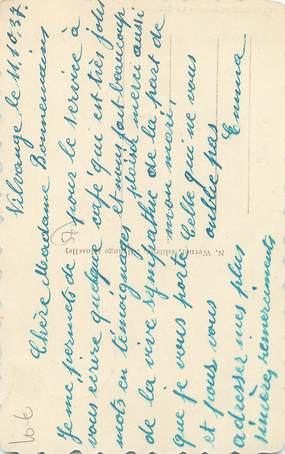 Nilvange le 11.10.37
Chère Madame Bonnemains
Je me permets de
vous écrire quelque
mots en témoignages
de la vive sympathie
que je vous porte
et pour vous
adresser mes plus
sincères remerciements
pour le service à
café qui est très joli
et nous tout beaucoup
plaint, merci aussi
de la part de
mon mari.
Celle qui ne vous
oublie pas
Emma
N. Werner, éditeur, Nilvange (Moselle)